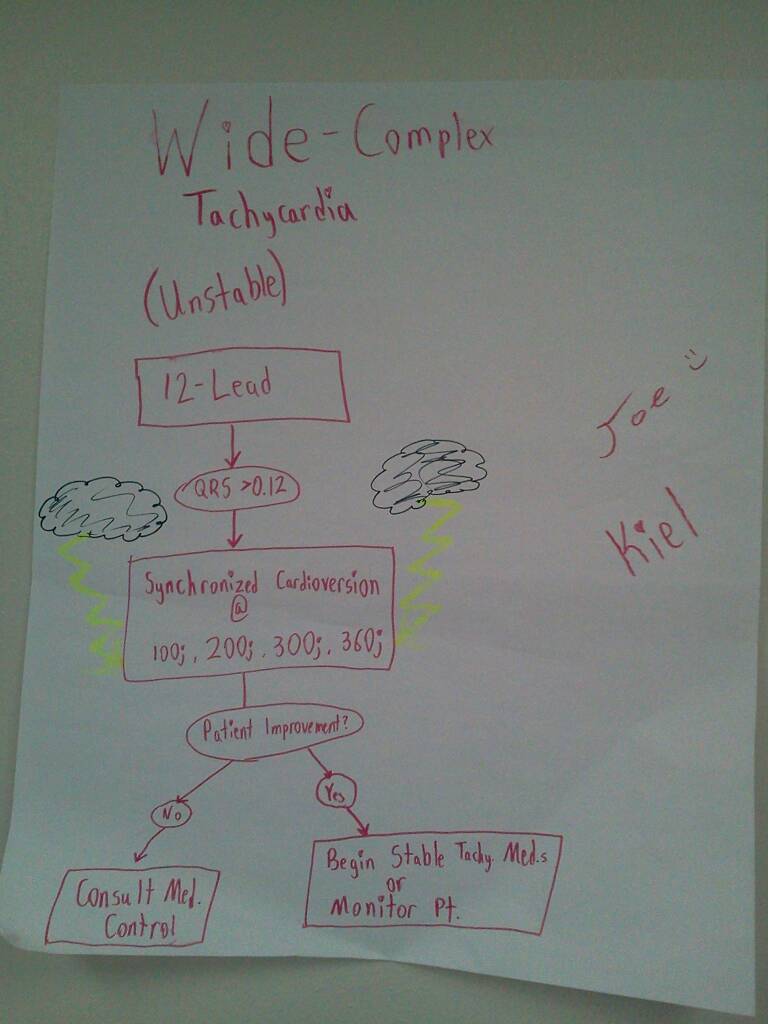 Wide-Complex
Tachycardia
(Unstable)
12-Lead
QRS >0.12
Synchronized Cardioversion
@
100j, 200j, 300j, 360j
Patient Improvement?
No
Yes
Consult Med.
Control
Begin Stable Tachy. Med.s
or
Monitor Pt.
Joe :)
Kiel